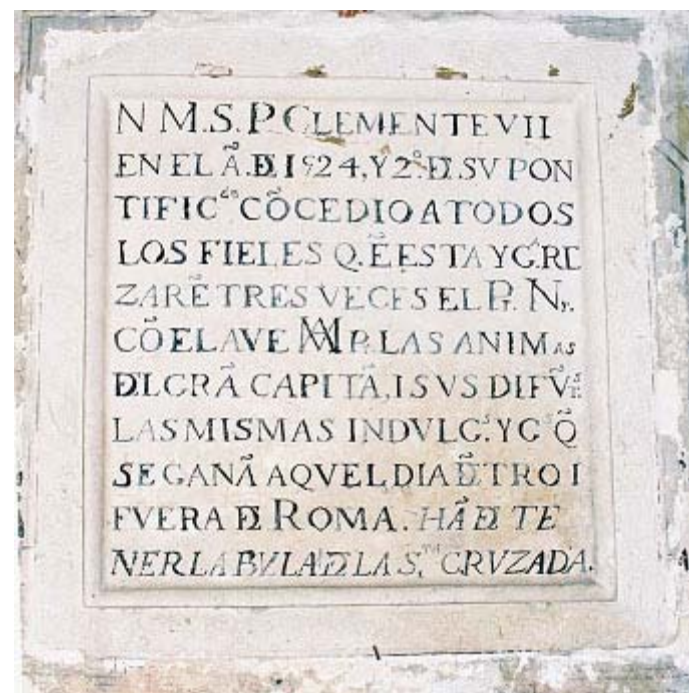 N M.S.P. CLEMENTE VII
EN EL Ã. Đ 1524, Y 2º. Đ. SV PON
TIFIC.ᵈᵒ CÕCEDIO A TODOS
LOS FIELES Q. Ẽ ESTA YG.ª RE
ZARẼ TRES VECES EL Pr. Nr.
CÕ EL AVE MA P. LAS ANIMAS
ĐL GRÃ CAPITÃ, I SVS DIFV̄.ˢ
LAS MISMAS INDVLG.ˢ Y G.ˢ Q̃
SE GANÃ AQVEL DIA DẼTRO I
FVERA Đ ROMA. HÃ Đ TE
NER LA BVLA Đ LA S.ᵗᵃ CRVZADA.